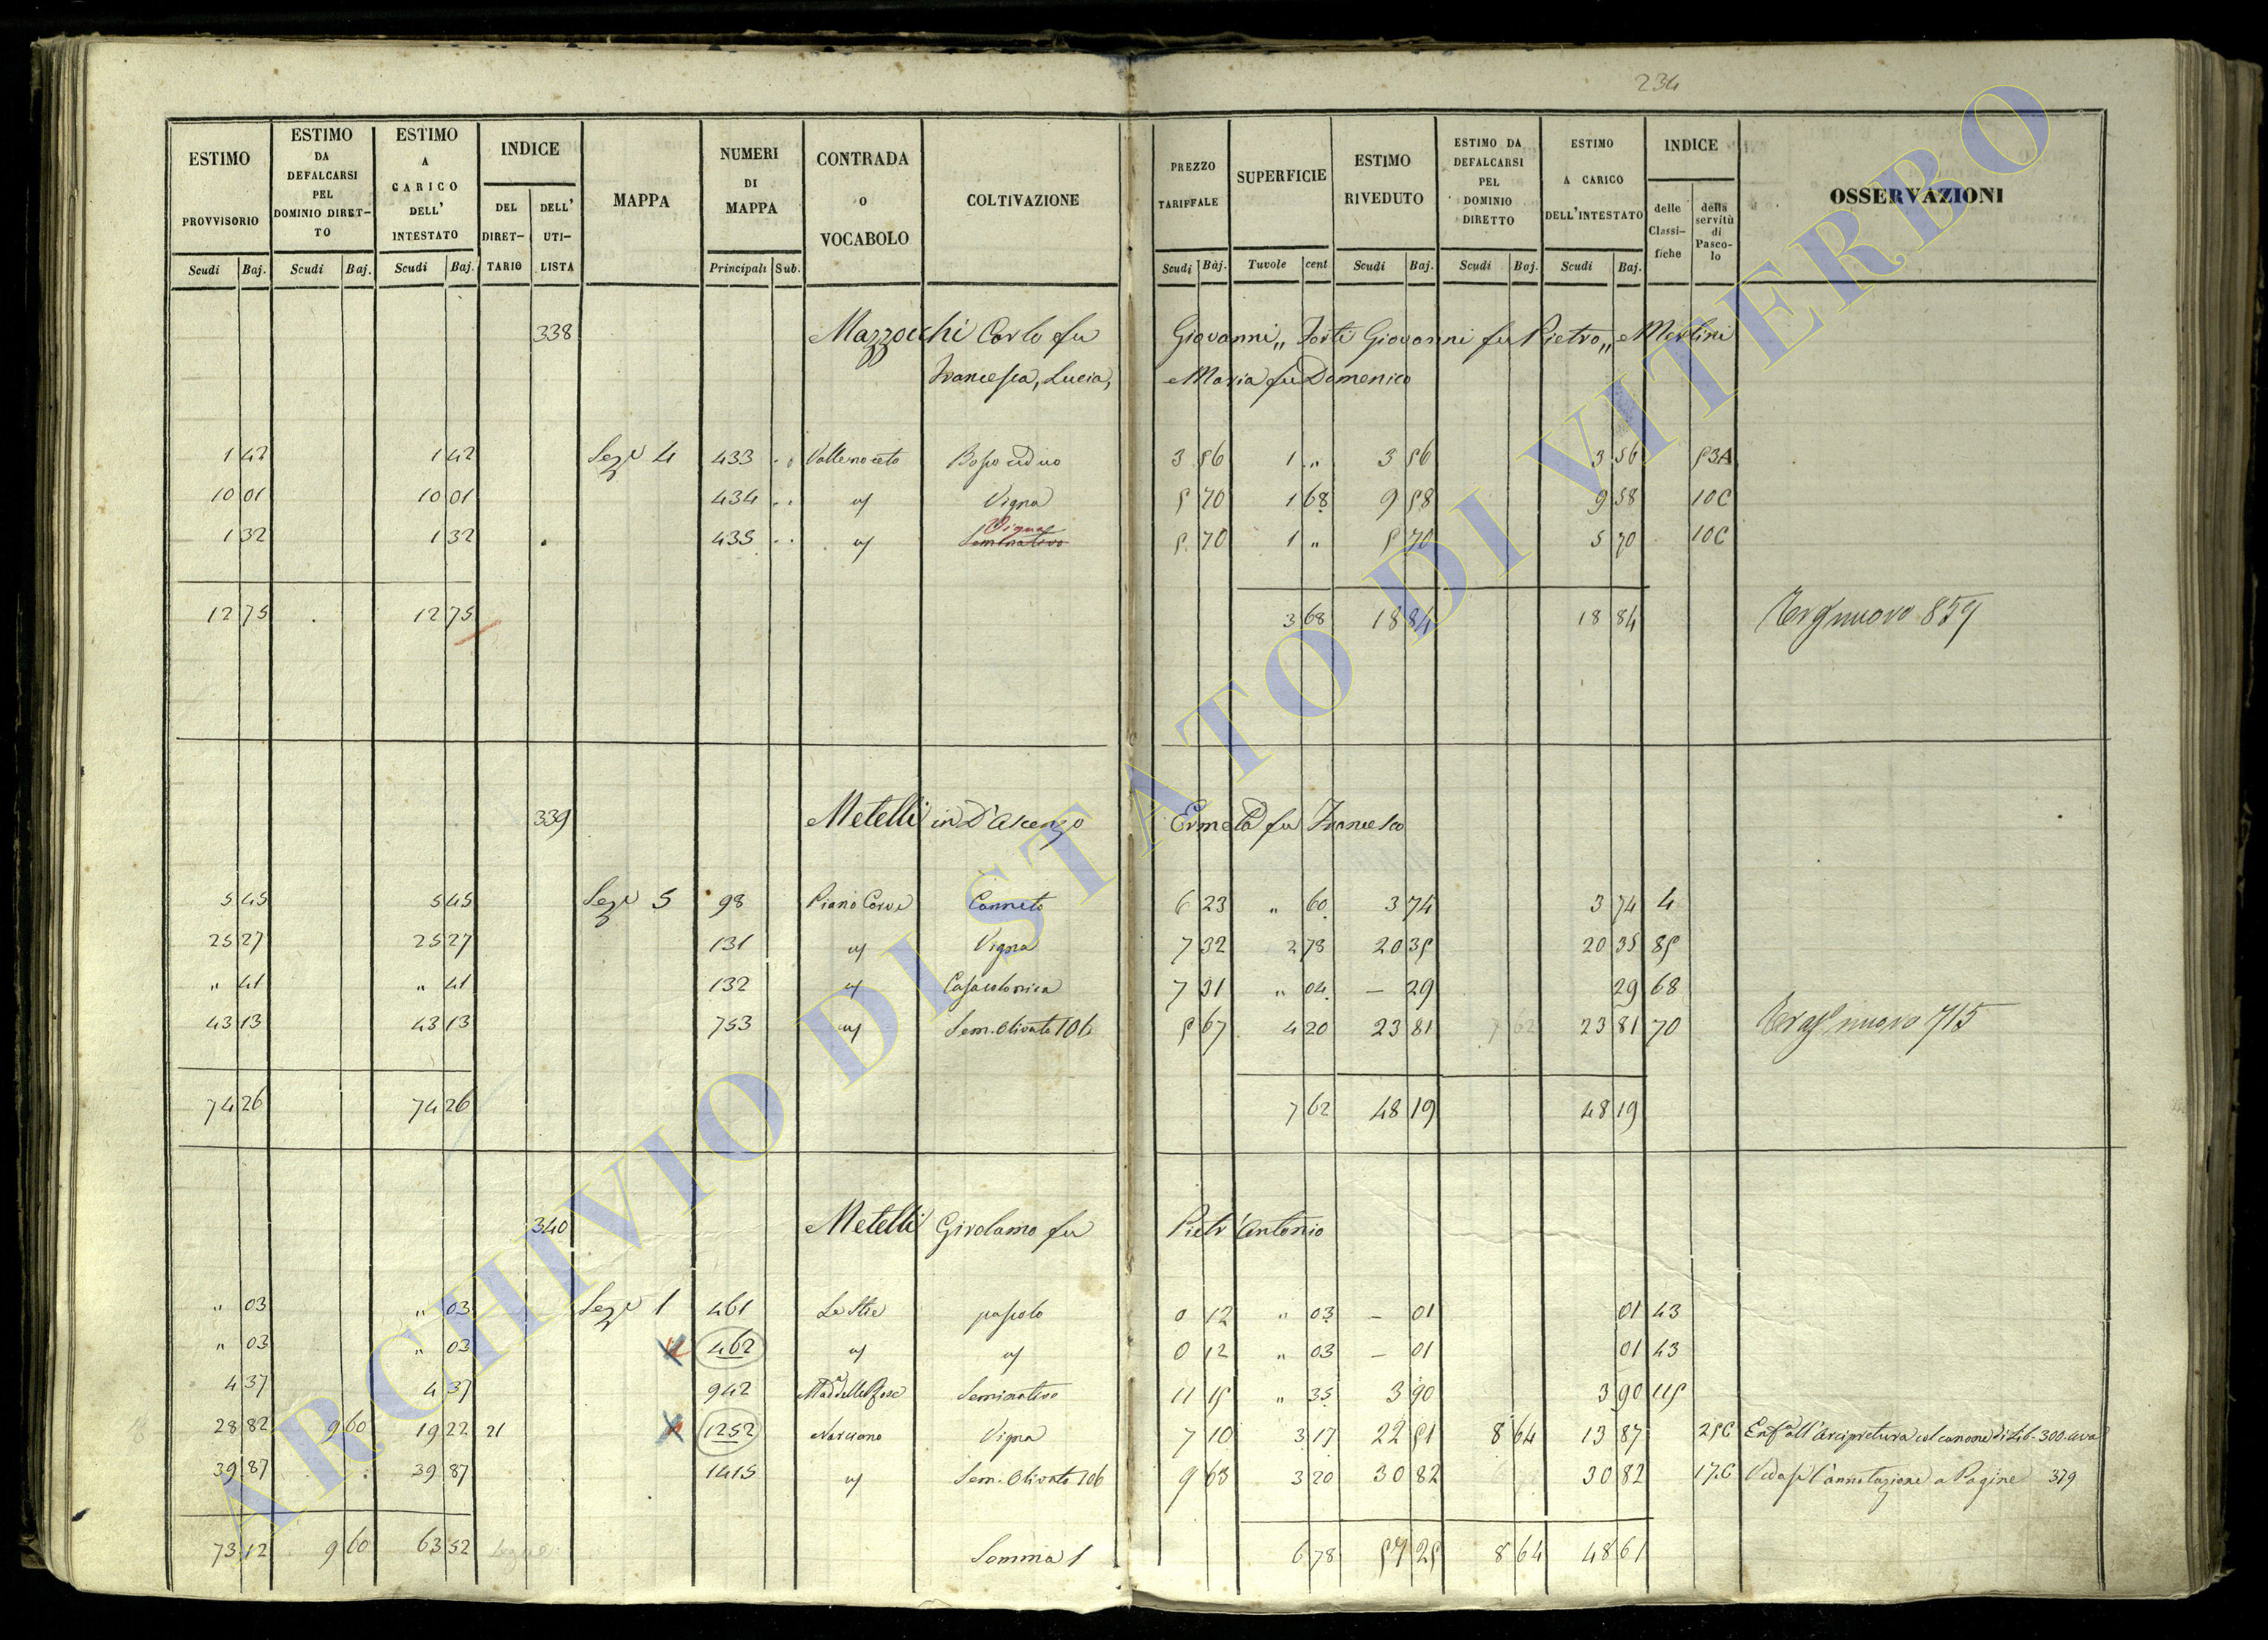 234
ESTIMO PROVVISORIO Scudi Baj. ESTIMO DA DEFALCARSI PEL DOMINIO DIRETTO Scudi Baj. ESTIMO A CARICO DELL' INTESTATO Scudi Baj. INDICE DEL DIRETTARIO DELL' UTILISTA MAPPA NUMERI DI MAPPA Principali Sub. CONTRADA O VOCABOLO COLTIVAZIONE PREZZO TARIFFALE Scudi Baj. SUPERFICIE Tavole cent ESTIMO RIVEDUTO Scudi Baj. ESTIMO DA DEFALCARSI PEL DOMINIO DIRETTO Scudi Baj. ESTIMO A CARICO DELL'INTESTATO Scudi Baj. INDICE delle Classifiche della servitù di Pascolo OSSERVAZIONI
338 Mazzocchi Carlo fu Giovanni „ Forti Giovanni fu Pietro „ Merlini
Francesca, Lucia, Maria fu Domenico
1 42 1 42 Sezz 4 433 Valle noceto Bosco ceduo 3 56 1 „ 3 56 3 56 53A
10 01 10 01 434 Vigna 5 70 1 68 9 58 9 58 10C
Vigna
1 32 1 32 435 Seminativo 5 70 1 „ 5 70 5 70 10C
12 75 12 75 3 68 18 84 18 84 nuovo 859
339 Metelli in D'Ascenzo Ermeta fu Francesco
5 45 5 45 Sezz 5 98 Piano Canneto 6 23 „ 60 3 74 3 74 4
25 27 25 27 131 Vigna 7 32 2 78 20 35 20 35 85
„ 41 „ 41 132 Casa colonica 7 31 „ 04 – 29 29 68
43 13 43 13 753 Sem. Olivato 106 5 67 4 20 23 81 7 62 23 81 70 nuovo 715
74 26 74 26 7 62 48 19 48 19
340 Metelli Girolamo fu Pietr'Antonio
„ 03 „ 03 Sezz 1 461 Le Stie pascolo 0 12 „ 03 – 01 01 43
„ 03 „ 03 462 0 12 „ 03 – 01 01 43
4 37 4 37 942 Seminativo 11 15 „ 35 3 90 3 90 115
28 82 9 60 19 22 21 1252 Narciano Vigna 7 10 3 17 22 51 8 64 13 87 25C Enf. all'Arcipretura col canone di Lib. 300 uva
39 87 39 87 1415 Sem. Olivato 106 9 63 3 20 30 82 30 82 17C Vedasi l'annotazione a Pagine 379
73 12 9 60 63 52 Somma 1 6 78 57 25 8 64 48 61
ARCHIVIO DI STATO DI VITERBO